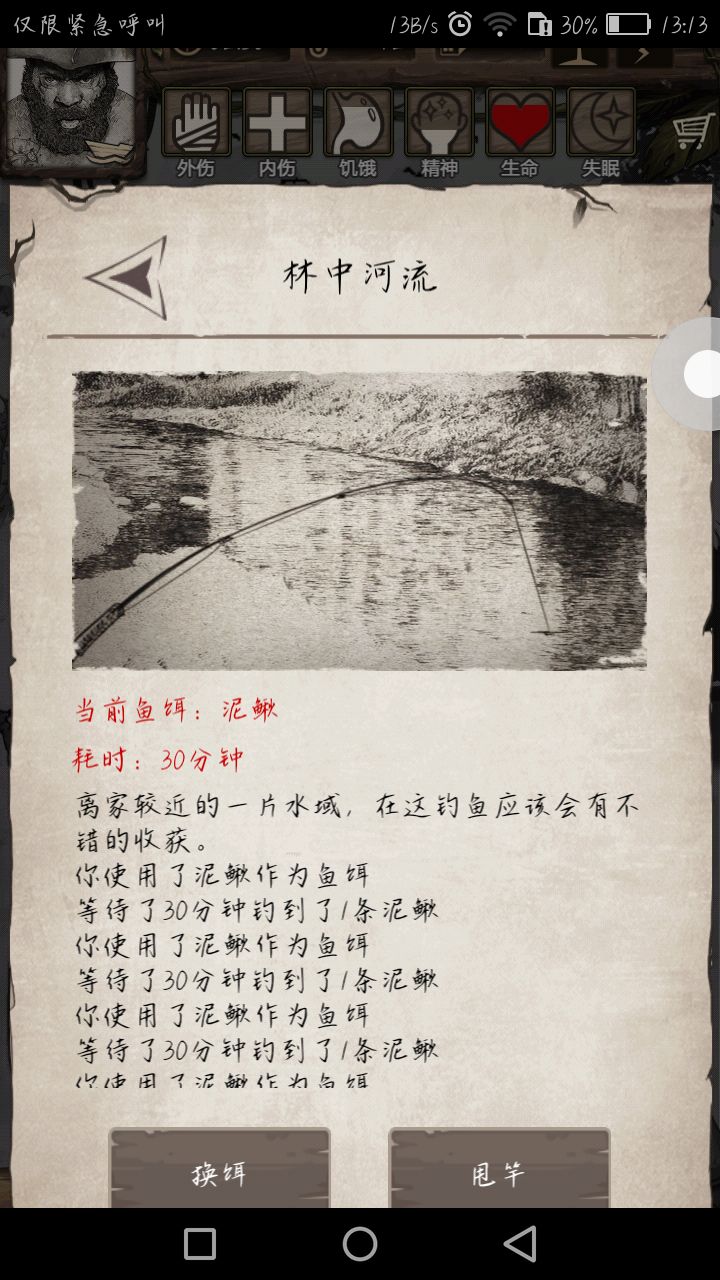 仅限紧急呼叫
13B/s 30% 13:13
外伤 内伤 饥饿 精神 生命 失眠
林中河流
当前鱼饵：泥鳅
耗时：30分钟
离家较近的一片水域，在这钓鱼应该会有不
错的收获。
你使用了泥鳅作为鱼饵
等待了30分钟钓到了1条泥鳅
你使用了泥鳅作为鱼饵
等待了30分钟钓到了1条泥鳅
你使用了泥鳅作为鱼饵
等待了30分钟钓到了1条泥鳅
你使用了泥鳅作为鱼饵
换饵 甩竿